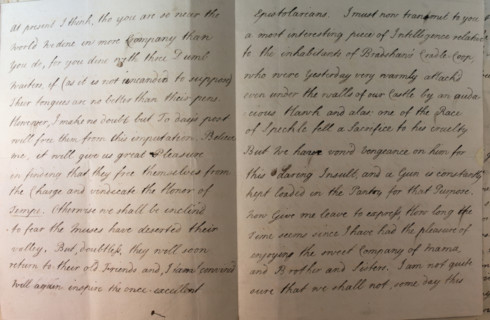 At present I think, tho you are so near the
World We dine in more Company than
You do, for you dine with three Dumb
Wasters, if (as it is not uncandid to suppose)
Their tongues are no better than their pens.
However, I make no doubt but To days post
will free them from this imputation. Believe
me, it will give us great Pleasure
in finding that they free themselves from
the Charge and vindicate the Honor of
Tempe. Otherwise we shall be inclind
to fear the Muses have deserted their
valley. But doubtless, they will soon
return to their old Friends and, I am convinced
Will again inspire the once-excellent
Epistolarians. I must now transmit to you
a most interesting piece of Intelligence relative
to the inhabitants of Bradshaw's Coop,
who were Yesterday very warmly attackd
even under the walls of our Castle by an auda
cious Hawk and alas one of the Race
of Speckle fell a Sacrifice to his cruelty
But We have vow'd vengeance on him for
this Daring Insult, and a Gun is constantly
kept loaded in the Pantry for that Purpose.
Now Give me leave to express, How long the
Time seems since I have had the pleasure of
enjoying the sweet Company of Mama,
and Brother and Sisters. I am not quite
sure that we shall not some day this